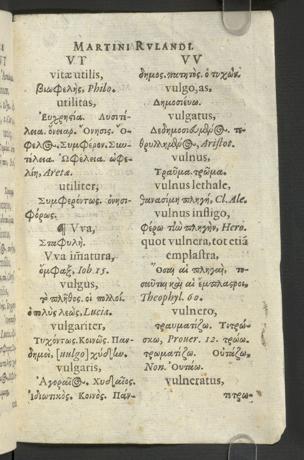 MARTINI RVLANDI.
VT
vitæ utilis,
βιωφελής, Philo.
utilitas,
Εὐχρηστία. Λυσιτέ-
λεια. ὄνειαρ. Ὄνησις. Ὄ-
φελος. Συμφέρον. Συν-
τέλεια. Ὠφέλεια. ὠφε-
λίη, Areta.
utiliter,
Συμφερόντως. ὀνησι-
φόρως.
¶ Vva,
Σταφυλή.
Vva im̃atura,
ὄμφαξ, Iob. 15.
vulgus,
τὸ πλῆθος. οἱ πολλοί.
ὁ πολὺς λεώς. Lucia.
vulgariter,
Τυχόντως. Κοινῶς. Παν-
δημεί, [vulgo] χύδην.
vulgaris,
Ἀγοραῖος. Χυδαῖος.
Ἰδιωτικός. Κοινός. Πάν-
VV
δημος. πατητός. ὁ τυχών.
vulgo, as.
Δημοσιεύω.
vulgatus,
τε-
θρυλλημένος, Aristot.
vulnus,
Τραῦμα. τρῶμα.
vulnus lethale,
θανασίμη πληγή, Cl. Ale.
vulnus infligo,
φέρω τὴν πληγὴν, Hero.
quot vulnera, tot etiã
emplastra,
Ὅσαι αἱ πληγαὶ, το-
σαῦται καὶ αἱ ἔμπλαστροι,
Theophyl. 60.
vulnero,
τραυματίζω. Τιτρώ-
σκω, Prouer. 12. τρώω.
τρωματίζω. Οὐτάζω,
Non. Οὐτάω.
vulneratus,
τιτρω-